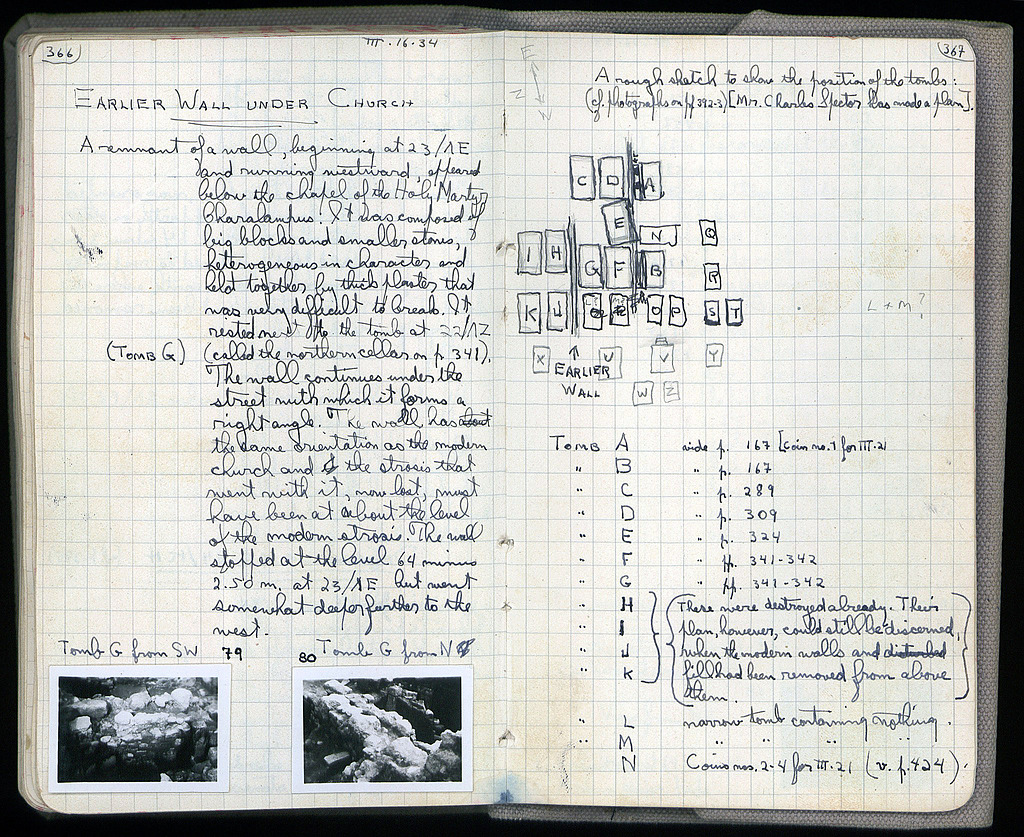 366
III.16.34
EARLIER WALL UNDER CHURCH
A remnant of a wall, beginning at 23/ΛE
and running westward, appeared
below the chapel of the Holy Martyr
Charalampus. It was composed of
big blocks and smaller stones,
heterogeneous in character and
held together by thick plaster that
was very difficult to break. It
rested next to the tomb at 22/ΛZ
(TOMB G) (called the northern cellar on p. 341).
The wall continues under the
street with which it forms a
right angle. The wall has about
the same orientation as the modern
church and if the strosis that
went with it, now lost, must
have been at about the level
of the modern strosis. The wall
stopped at the level 64 minus
2.50 m. at 23/ΛE but went
somewhat deeper further to the
west.
Tomb G from SW 79
80 Tomb G from N
367
E
N
A rough sketch to show the position of the tombs:
(cf. photographs on pp 392-3) [Mr. Charles Spector has made a plan].
C D A
E
N Q
I H G F B R
K J O P S T
L + M?
X U V Y
EARLIER
WALL
W Z
TOMB A vide p. 167 [Coin no. 1 for III.21
" B " p. 167
" C " p. 289
" D " p. 309
" E " p. 324
" F " pp. 341-342
" G " pp. 341-342
" H These were destroyed already. Their
" I plan, however, could still be discerned,
" J when the modern walls and disturbed
" K fill had been removed from above
them.
" L narrow tomb containing nothing.
" M " " " "
" N Coins nos. 2-4 for III.21 (v. p. 424).